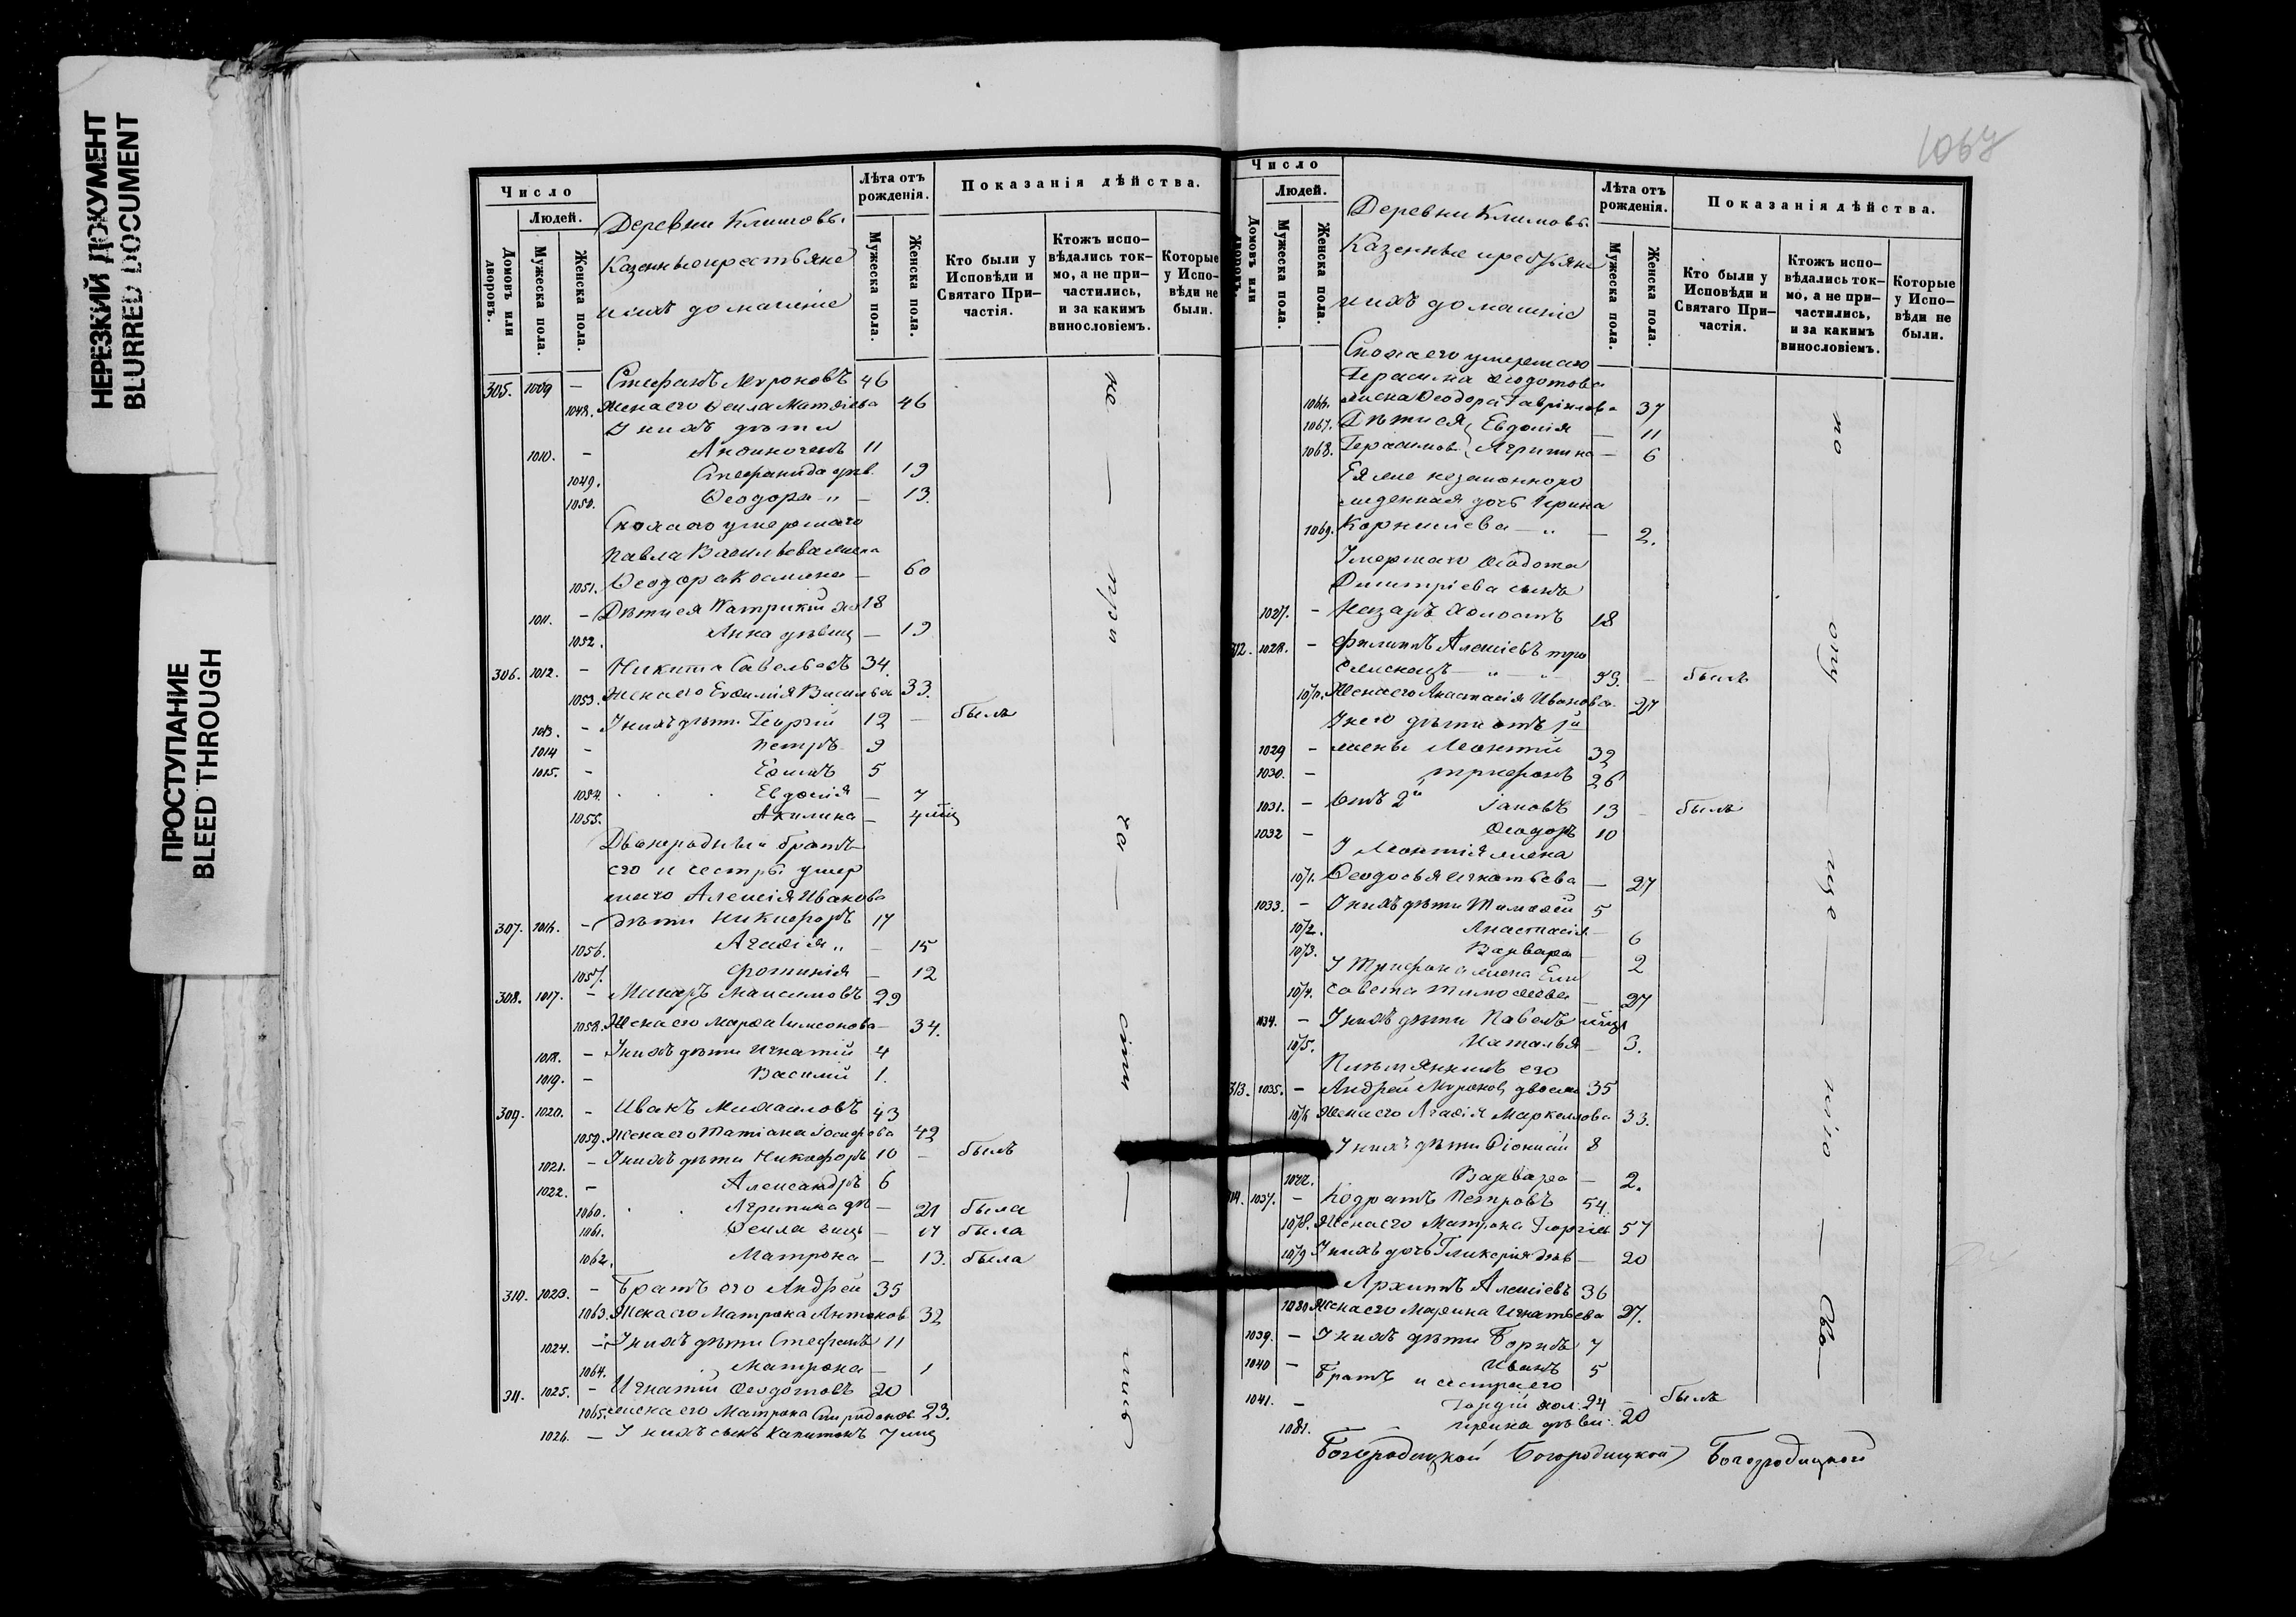 НЕРЕЗКИЙ ДОКУМЕНТ
BLURRED DOCUMENT
ПРОСТУПАНИЕ
BLEED THROUGH
Число
Людей.
Домовъ или дворовъ.
Мужеска пола.
Женска пола.
Деревни Климовъ.
Казенные крестьяне
и ихъ домашніе
Лѣта отъ рожденія.
Мужеска пола.
Женска пола.
Показанія дѣйства.
Кто были у Исповѣди и Святаго При–частія.
Ктожъ испо–вѣдались ток–мо, а не при–частились, и за какимъ винословіемъ.
Которые у Испо–вѣди не были.
305. 1009 — Стефанъ Мироновъ 46
1048. Жена его Ѳекла Матѳіева 46
У нихъ дѣти
1010. — 11
1049. Стефанида дѣв. 19
1050. Ѳеодора „ — 13.
Сноха его умершаго
Павла Васильева жена
1051. Ѳеодора Космина — 60
1011. — Дѣти ея Патрикій хол 18
1052. Анна дѣвиц — 19
306. 1012. — Никита Савельевъ 34.
1053. Жена его Евѳимія Василье 33.
1013. — У нихъ дѣти Георгій 12 — былъ
1014 — Петръ 9
1015. — Ефимъ 5
1054. Евдокія — 7
1055. Акилина — 4 мѣц
Двоюродный братъ
его и сестры умер
шаго Алексія Иванова
307. 1016. — дѣти Никифоръ 17
1056. Агафія „ — 15
1057. Фотинія — 12
308. 1017. — Макаръ Максимовъ 29
1058. Жена его Марѳа Симеонова — 34.
1018. — У нихъ дѣти Игнатій 4
1019. — Василій 1.
309. 1020. — Иванъ Михайловъ 43
1059. Жена его Татіана Іосифова 42
1021. — У нихъ дѣти Никифоръ 10 — былъ
1022. — Александръ 6
1060. Агрипина дѣ — 21 была
1061. Ѳекла — 17 была
1062. Матрона — 13. была
310. 1023. — Братъ его Андрей 35
1063. Жена его Матрона Антонов 32
1024. — У нихъ дѣти Стефанъ 11
1064. Матрона — 1
311. 1025. — Игнатій Ѳеодотовъ 20
1065. жена его Матрона Спиридонов 23.
1026. — У нихъ сынъ Капитонъ 7 мѣц
не — при — ча — сти — лись
1067
Число
Людей.
Домовъ или дворовъ.
Мужеска пола.
Женска пола.
Деревни Климовъ.
Казенные крестьяне
и ихъ домашніе
Лѣта отъ рожденія.
Мужеска пола.
Женска пола.
Показанія дѣйства.
Кто были у Исповѣди и Святаго При–частія.
Ктожъ испо–вѣдались ток–мо, а не при–частились, и за какимъ винословіемъ.
Которые у Испо–вѣди не были.
Сноха его умершаго
Герасима Ѳеодотова
1066. жена Ѳеодора Гаврилова 37
1067. Дѣти ея Евдокія — 11
1068. Герасимов. Агрипина — 6
Ея же незаконноро
жденная дочь Ирина
1069. Корнилиева — „ — 2.
Умершаго Ѳеодота
Димитріева сынъ
1027. — Назаръ холостъ 18
312. 1028. — Филиппъ Алексіевъ тро
еженецъ — „ — 59. — былъ
1070. Жена его Анастасія Иванова. 27
У него дѣти отъ 1й
1029 — жены Леонтій 32
1030. — Трифонъ 26
1031. — Отъ 2й Іаковъ 13 — былъ
1032 — Ѳеодоръ 10
У Леонтія жена
1071. Ѳеодосья Игнатьева — 27
1033. — У нихъ дѣти Тимоѳей 5
1072. Анастасія — 6
1073. Варвара — 2
У Трифона жена Ели
1074. савета Тимоѳеева — 27
1034. — У нихъ дѣти Павелъ
1075. Наталья — 3.
Племянникъ его
313. 1035. — Андрей Мироновъ двоеж 35
1076 Жена его Агафія Маркелова 33.
У нихъ дѣти Діонисій 8
1077. Варвара — 2.
314. 1037. — Кодратъ Петровъ 54
1078. Жена его Матрона Георгіев 57
1079 У нихъ дочь Гликерія дѣв — 20
Архиппъ Алексіевъ 36
1080 Жена его Марина Игнатьева 27.
1039. — У нихъ дѣти Борисъ 7
1040 — Иванъ 5
Братъ и сестра его
1041. — Гордій хол. 24 — былъ
1081. Ирина дѣви: 20
по — опу — ще — нію — Об —
Богородицкой Богородицкой Богородицкой